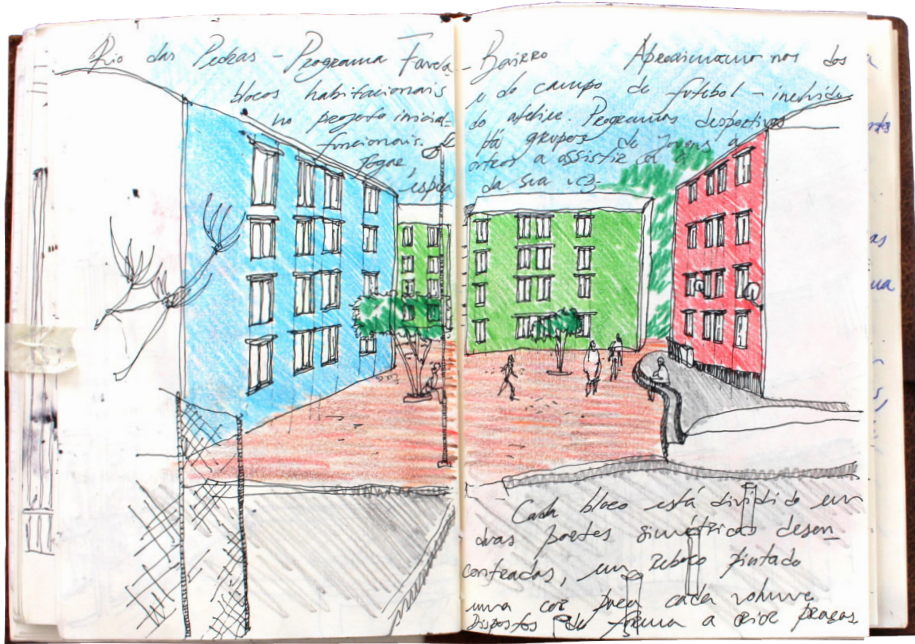 Rio das Pedras - Programa Favela - Bairro Aproximamo nos dos
blocos habitacionais e do campo de futebol - incluídos
no projeto inicial do atelier. Programas desportivos
funcionais. Há grupos de Jovens a
Jogar, outros a assistir ou à
espera da sua vez
Cada bloco está dividido em
duas partes simétricas desen-
contradas, em reboco pintado
uma cor para cada volume
Dispostos de forma a criar praças